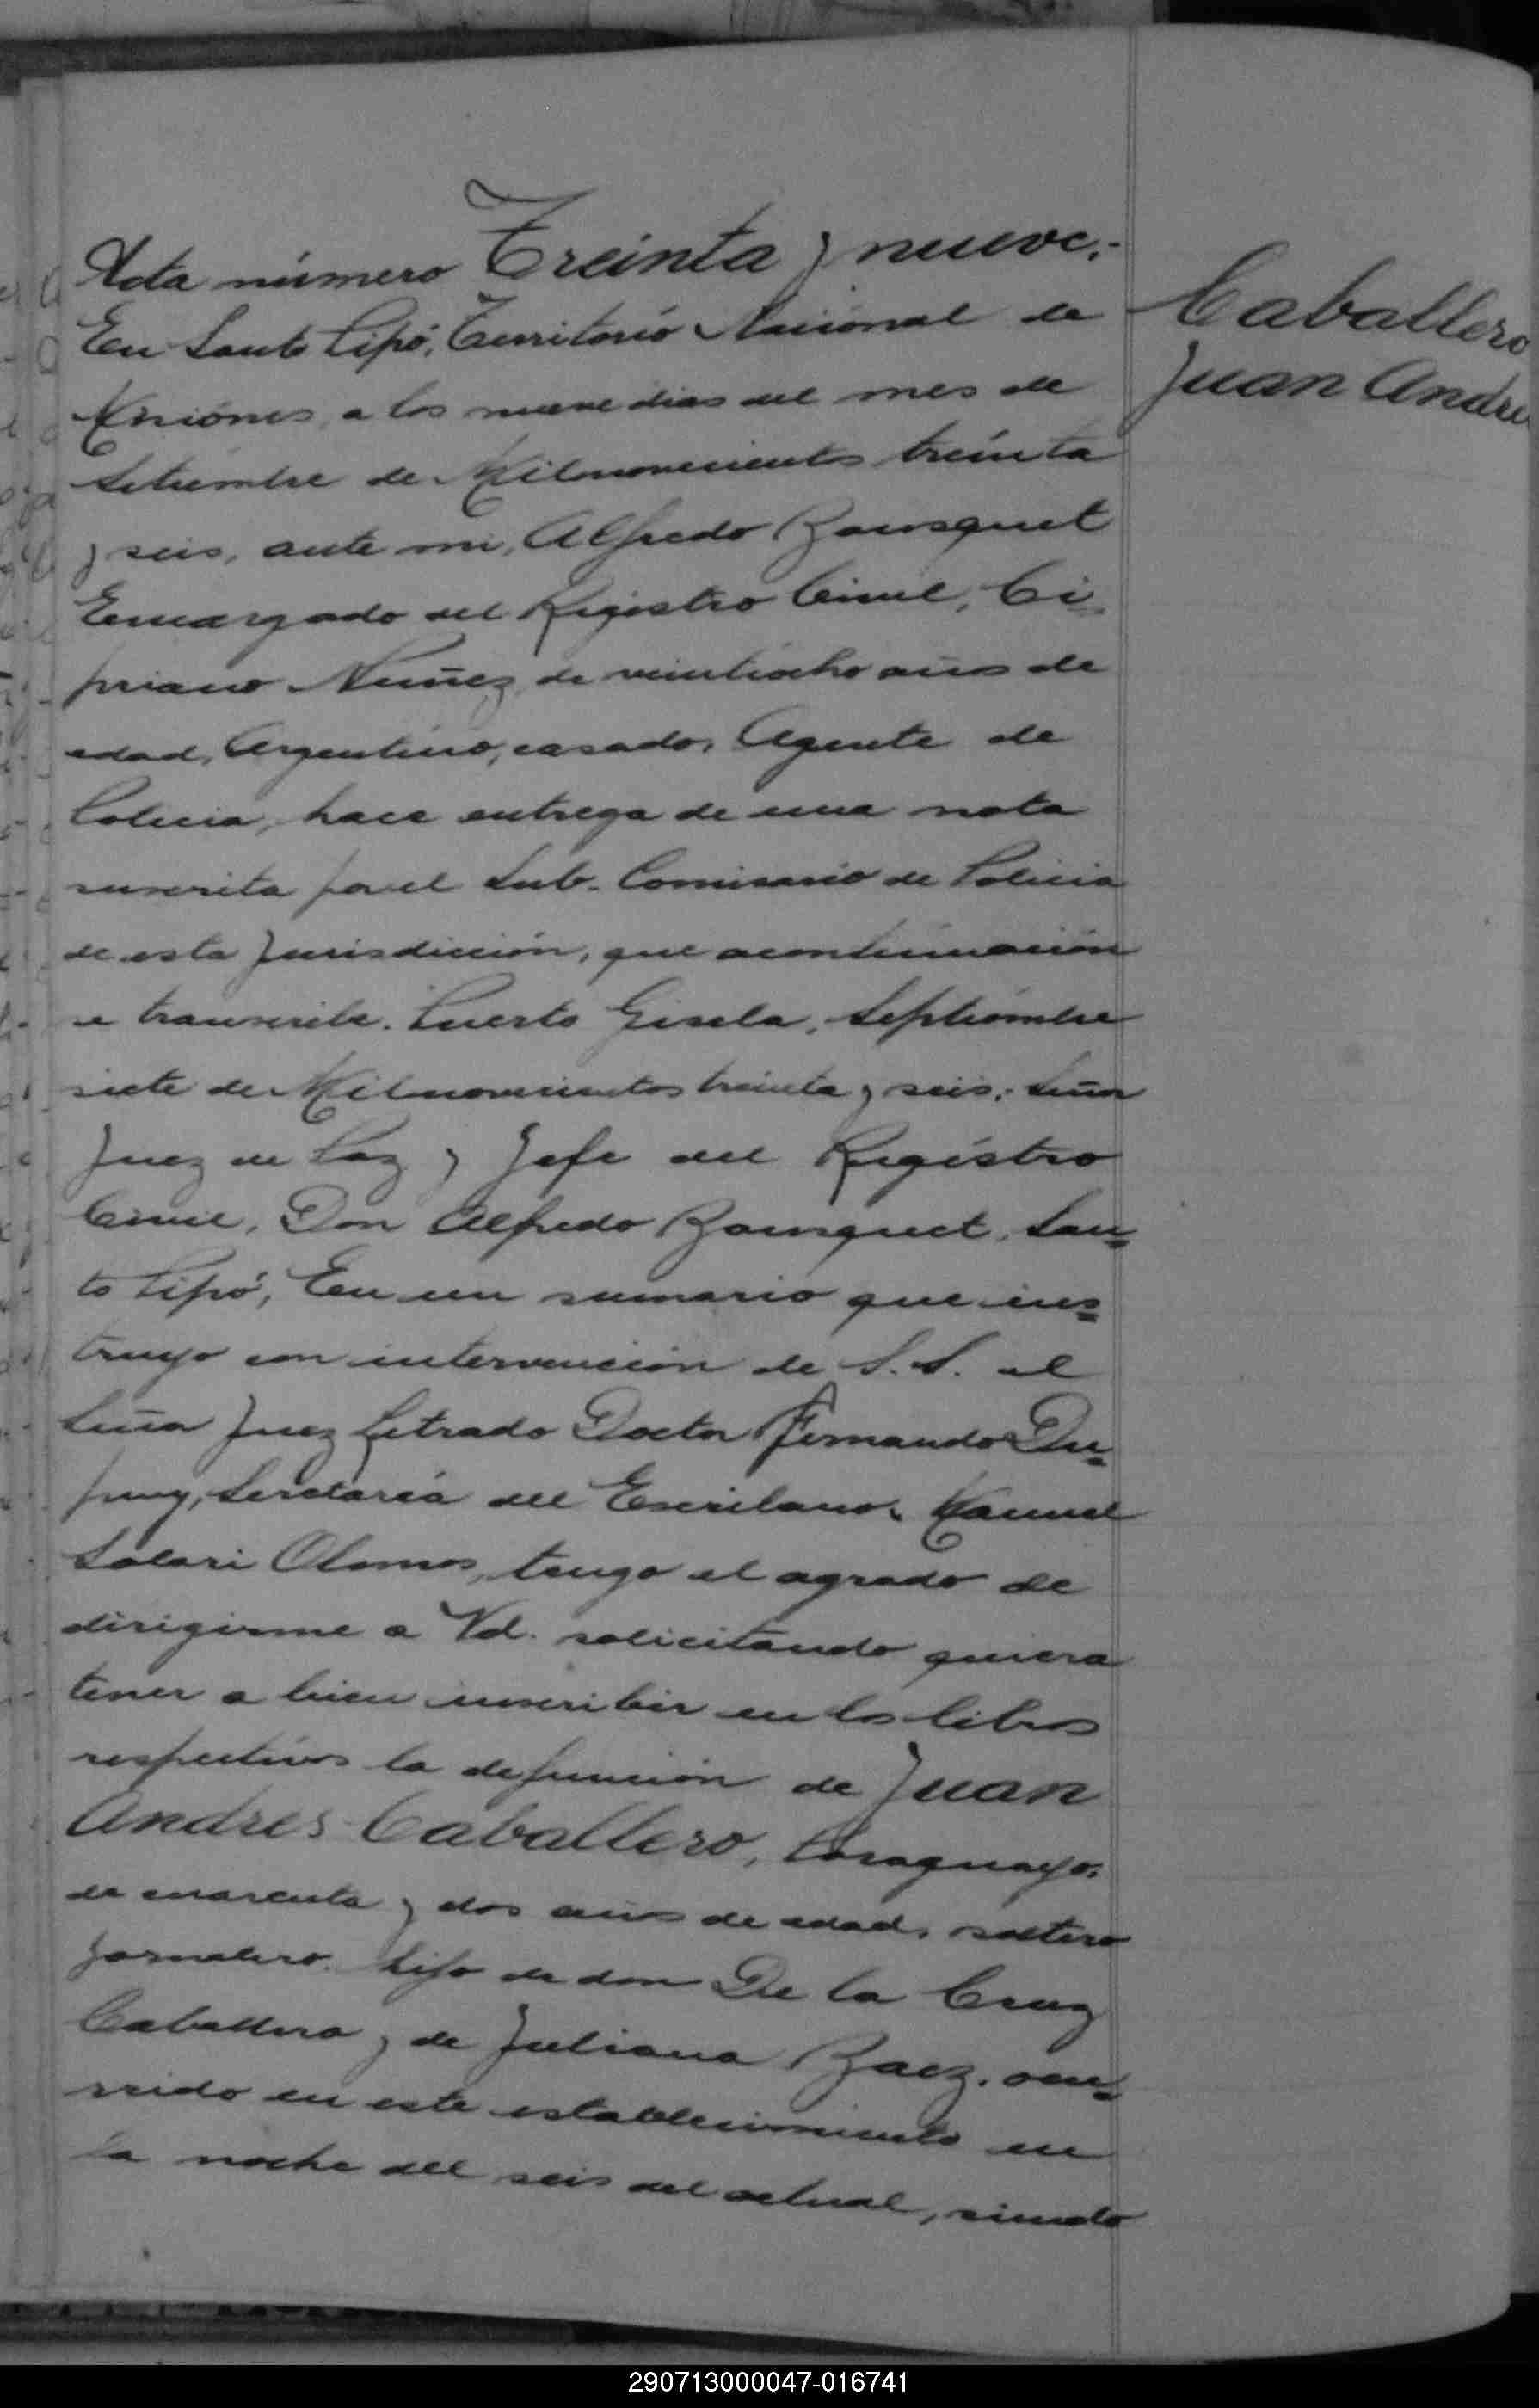 Acta número Treinta y nueve.-
En Santo Pipó, Territorio Nacional de
Misiónes, a los nueve dias del mes de
Setiémbre de Milnovecientos treínta
y seis, ante mi, Alfredo Bousquet
Encargado del Registro Civil, Ci-
priano Nuñez, de veintiocho años de
edad, Argentino, casado, Agente de
Policia, hace entrega de una nota
suscrita por el Sub-Comisario de Policia
de esta Jurisdicción, que acontinuación
se transcribe. Puerto Gisela, Septiémbre
siete de Milnovecientos treinta y seis.- Señor
Juez de Paz y Jefe del Registro
Civil, Don Alfredo Bousquet, San-
to Pipó, En un sumario que ins-
truyo con intervención de S.S. el
Señor Juez Letrado Doctor Fernando Du-
puy, Secretaría del Escribano, Manuel
Solari Olmos, tengo el agrado de
dirigirme a Vd. solicitando quiera
tener a bien inscribir en los libros
respectivos la defunción de Juan
Andres Caballero, Paraguayo,
de cuarenta y dos años de edad, soltero
jornalero. hijo de don De la Cruz
Caballero y de Juliana Baez. ocu-
rrido en este establecimiento en
la noche del seis del actual, siendo
Caballero
Juan Andre
290713000047-016741